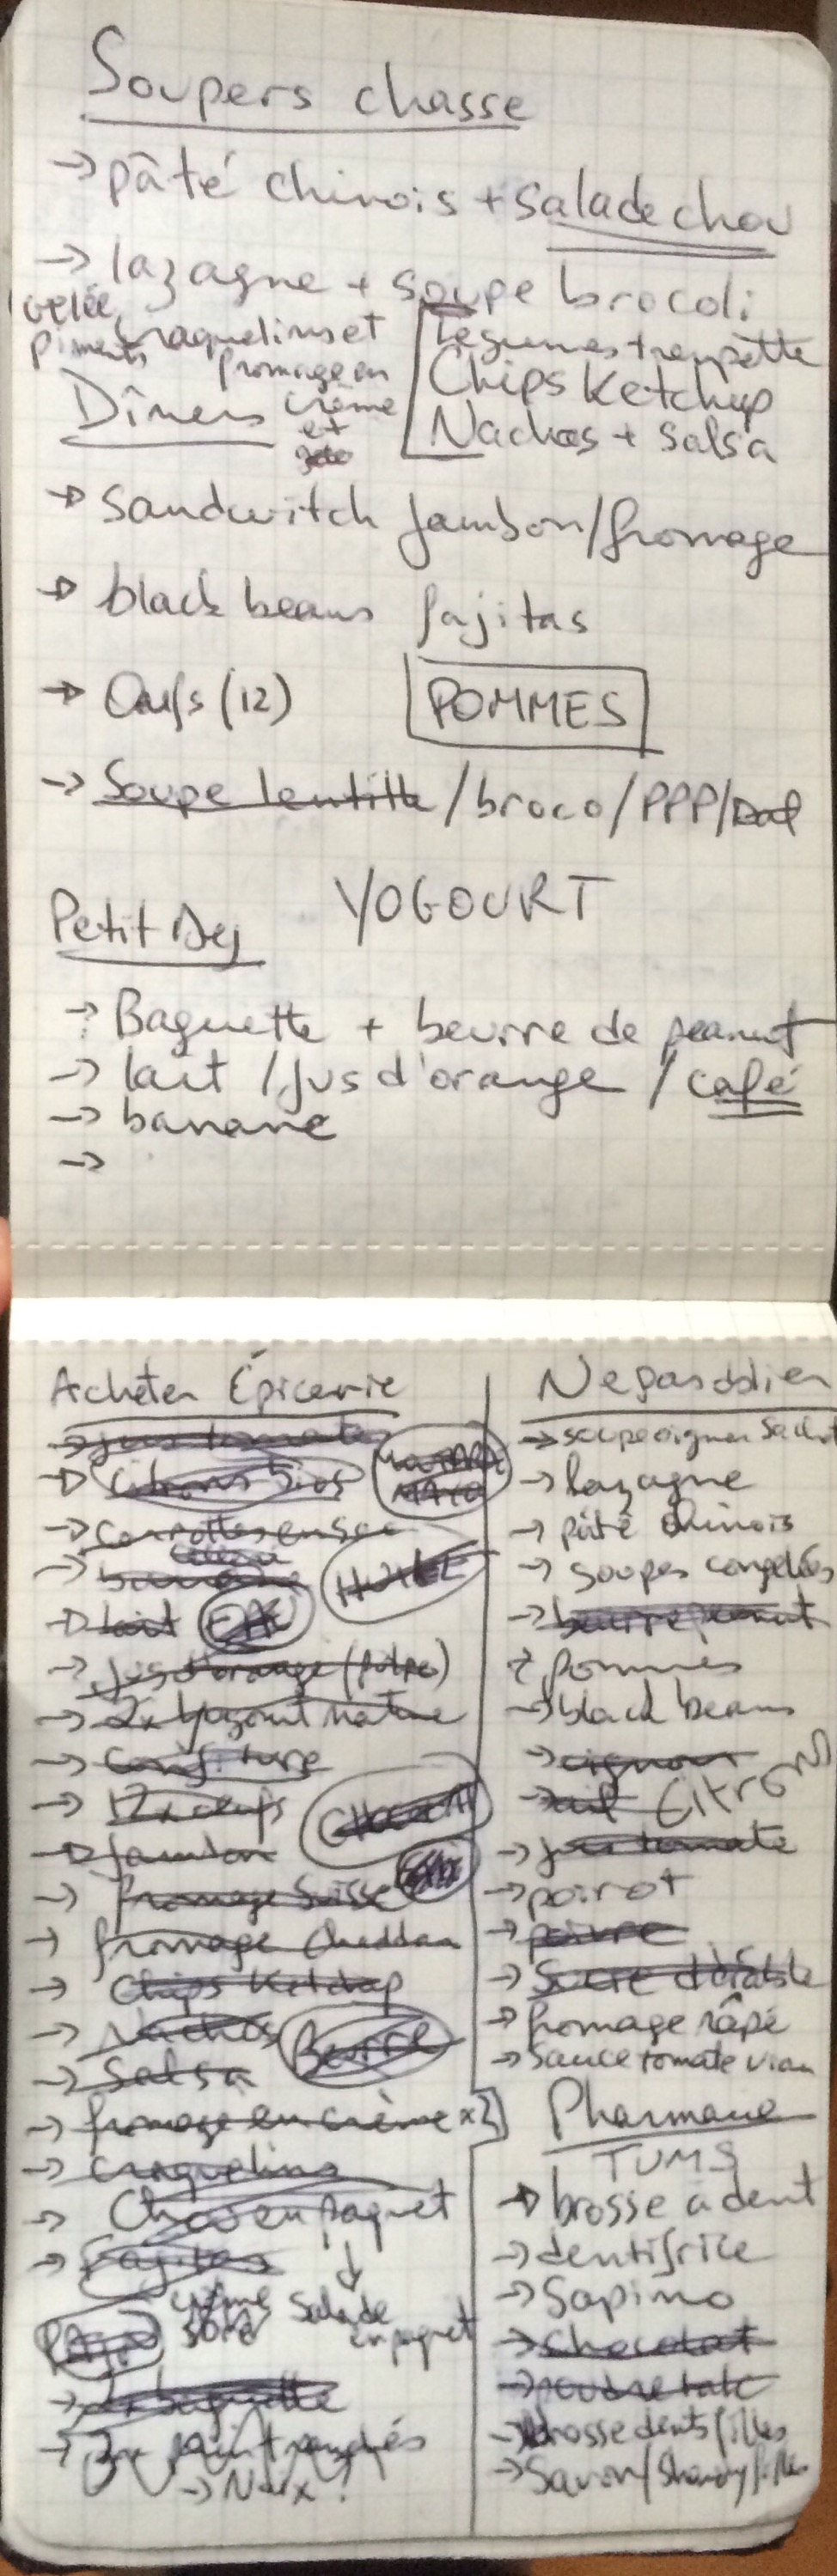 Soupers chasse
→ pâté chinois + salade chou
→ lazagne + soupe brocoli
Gelée piments
craquelins et
fromage en
crème
et
Légumes + trempette
Chips Ketchup
Nachos + salsa
Dîners
→ Sandwitch jambon/fromage
→ black beans fajitas
→ Oeufs (12)
POMMES
→ Soupe lentille / broco / PPP / Dal
YOGOURT
Petit Dej
→ Baguette + beurre de peanut
→ lait / jus d'orange / café
→ banane
→
Acheter Épicerie
→ jus tomates
→ Citrons bios
MAYO
→ carrottes en sac
→
HUILE
→ lait
→ Jus d'orange (pulpe)
→ 2x yogourt nature
→ Confiture
→ 12 x oeufs
→ Jambon
→ fromage Suisse
→ fromage cheddar
→ Chips Ketchup
→ Nachos
Beurre
→ Salsa
→ fromage en crème x2
→ craquelins
→ Chou en paquet
→ Fajitas
↓
crème
sure
salade
en paquet
→ 2x baguette
→ 2x pain tranchés
→ Noix ?
Ne pas oublier
→ soupe oignon sachet
→ lazagne
→ pâté chinois
→ soupes congelées
→ beurre peanut
→ pommes
→ black beans
→ oignon
→ ail
Citron
→ jus tomate
→ poirot
→ poivre
→ Sucre d'érable
→ fromage râpé
→ Sauce tomate vian
Pharmacie
TUMS
→ brosse a dent
→ dentifrice
→ Sapino
→ Chocolat
→ poudre talc
→ brosse dents filles
→ Savon/